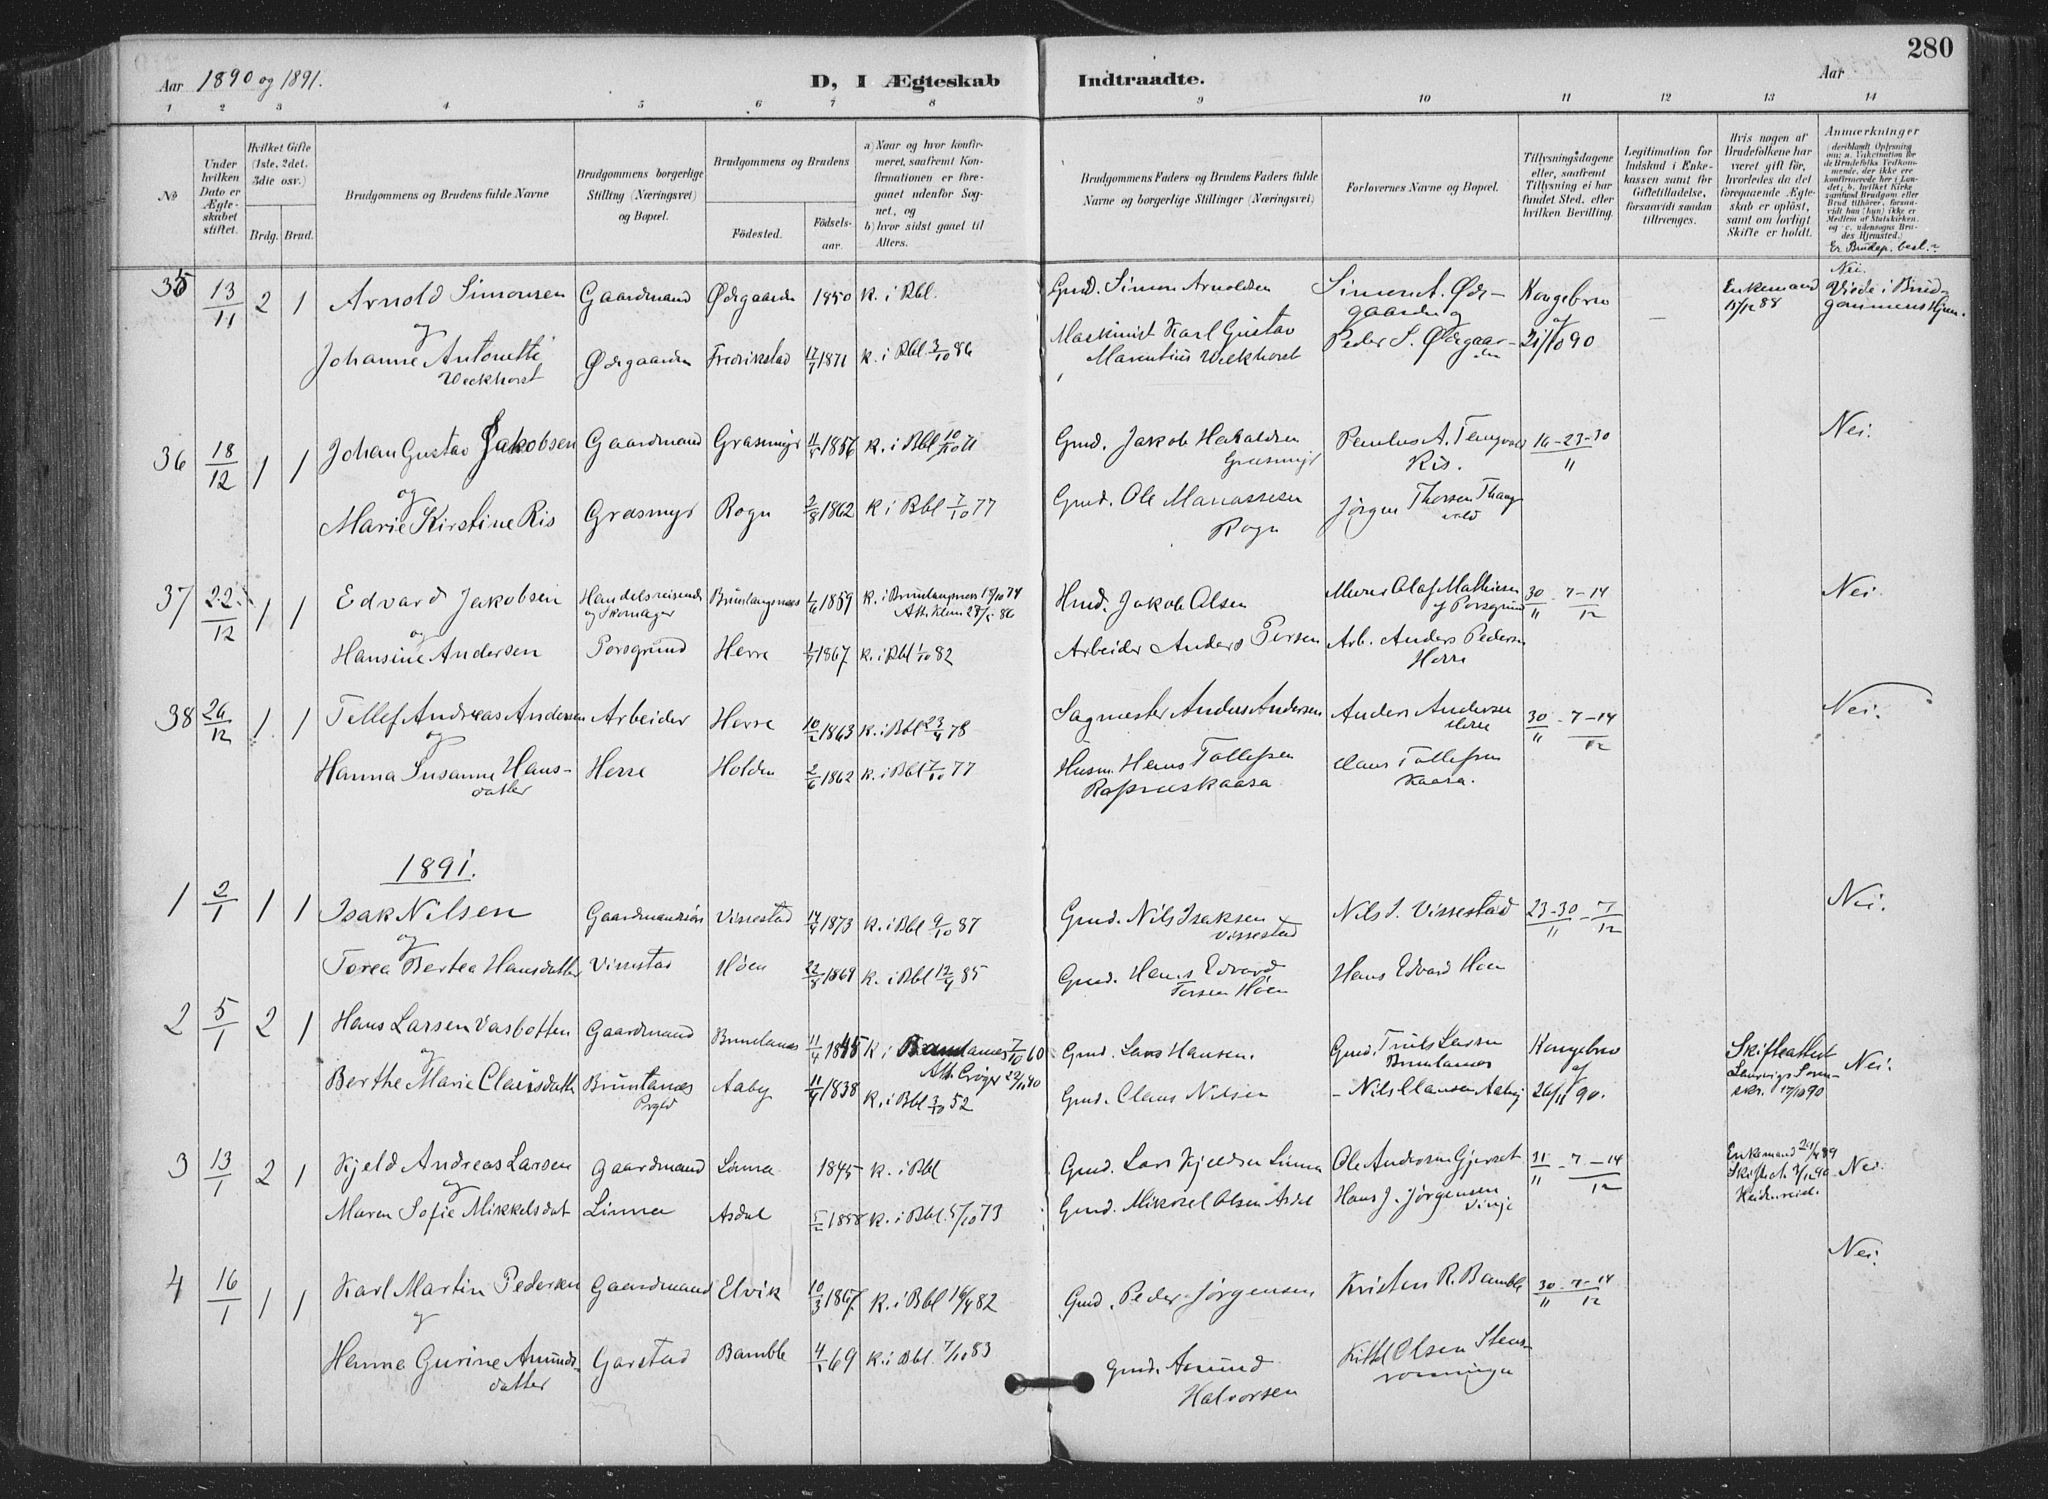 280
Aar 1890 og 1891. D, I Ægteskab Indtraadte. Aar
1 2 3 4 5 6 7 8 9 10 11 12 13 14
No
Under hvilken Dato er Ægteskabet stiftet.
Hvilket Gifte (1ste, 2det, 3die osv.)
Brdg. Brud.
Brudgommens og Brudens fulde Navne
Brudgommens borgerlige Stilling (Næringsvei) og Bopæl.
Brudgommens og Brudens
Födested. Födselsaar.
a) Naar og hvor konfirmeret, saafremt Konfirmationen er foregaaet udenfor Sognet, og
b) hvor sidst gaaet til Alters.
Brudgommens Faders og Brudens Faders fulde Navne og borgerlige Stillinger (Næringsvei)
Forlovernes Navne og Bopæl.
Tillysningsdagene eller, saafremt Tillysning ei har fundet Sted, efter hvilken Bevilling.
Legitimation for Indskud i Enkekassen samt for Giftetilladelse, forsaavidt saadan tiltrænges.
Hvis nogen af Brudefolkene har været gift för, hvorledes da det foregaaende Ægteskab er oplöst, samt om lovligt Skifte er holdt.
Anmærkninger (deriblandt Oplysning om: a. Vakcination for de Brudefolks Vedkommende, der ikke ere konfirmerede her i Landet; b. hvilket Kirkesamfund Brudgom eller Brud tilhörer, forsaavidt han (hun) ikke er Medlem af Statskirken, og c. udensogns Brudes Hjemsted.)
Er Brudep. besl.?
35 13/11 2 1 Arnold Simonsen Gaardmand Ødegaarden 1850 K. i Bbl. Gmd. Simon Arnoldsen Simon A. Ødegaarden og Kongebrev af Enkemand 15/12 88 Nei. Viede i Brudgommens Hjem.
og
Johanne Antonette Weekhorst Ødegaarden Fredrikstad 17/7 1871 K. i Bbl 3/10 86 Maskinist Karl Gustav Marentius Weekhorst Peder S. Ødegaarden 21/10 90
36 18/12 1 1 Johan Gustav Jakobsen Gaardmand Grasmyr 11/5 1856 K. i Bbl 10/10 71 Gmd. Jakob Haraldsen Grasmyr Paulus A. Tengvald Ris. 16-23-30/11 Nei.
og
Marie Kirstine Ris Grasmyr Rogn 2/8 1862 K i Bbl 7/10 77 Gmd. Ole Manassesen Rogn Jørgen Thorsen Thangvald
37 22/12 1 1 Edvard Jakobsen Handelsreisende og Skomager Brunlangnæs 1/6 1859 K. i Brunlangnæs 18/10 74 Hmd. Jakob Olsen Murer Olaf Mathiesen af Porsgrund 30/11 - 7-14/12 Nei.
og
Hansine Andersen Porsgrund Herre 1/7 1867 K. i Bbl 1/10 82 Arbeider Anders Persen Arb. Anders Pedersen Herre
38 26/12 1 1 Tellef Andreas Andersen Arbeider Herre 10/2 1863 K. i Bbl 23/4 78 Sagmester Anders Andersen Anders Andersen Herre 30/11 - 7-14/12 Nei.
og
Hanna Susanne Hansdatter Herre Holden 2/6 1862 K. i Bbl 7/10 77 Husm. Hans Tollefsen Rafneskaasa Hans Tollefsen Kaasa.
1891.
1 2/1 1 1 Isak Nilsen Gaardmandssøn Vissestad 14/4 1873 K. i Bbl 9/10 87 Gmd. Nils Isaksen Vissestad Nils I. Vissestad 23-30/11 - 7/12 Nei.
og
Torea Bertea Hansdatter Vissestad Høen 22/8 1869 K. i Bbl 12/4 85 Gmd. Hans Edvard Torsen Høen Hans Edvard Høen
2 5/1 2 1 Hans Larsen Vasbotten Gaardmand Brunlanæs 11/4 1845 K i Brunlanæs 7/10 60 Gmd. Lars Hansen. Gmd. Truls Larsen Brunlanæs Kongebrev af Skifteattest Larvigs Sorenskr. 17/10 90 Nei.
og Att. Crøger 22/11 90
Berthe Marie Clausdatter Brunlanæs Prgld Aaby 11/4 1838 K. i Bbl 3/10 52 Gmd. Claus Nilsen - Nils Clausen Aaby 26/11 90.
3 13/1 2 1 Kjeld Andreas Larsen Gaardmand Linna 1845 K. i Bbl Gmd. Lars Kjeldsen Linna Ole Andersen Gjerset 31/11 - 7-14/12 Enkemand 29/4 89 Skifteat. 3/12 90 Nei.
og
Maren Sofie Mikkelsdat Linna Asdal 5/2 1858 K. i Bbl. 5/10 73 Gmd. Mikkel Olsen Asdal Hans J. Jørgensen Vinje
4 16/1 1 1 Karl Martin Pedersen Gaardmand Elvik 10/3 1867 K. i Bbl 16/4 82 Gmd. Peder Jørgensen Kristen R. Bamble 30/11 - 7-14/12 Nei.
og
Hanna Gurine Amundsdatter Garstad Bamble 4/1 69 K. i Bbl. 7/10 83 Gmd. Amund Halvorsen Kittel Olsen Stensrønningen